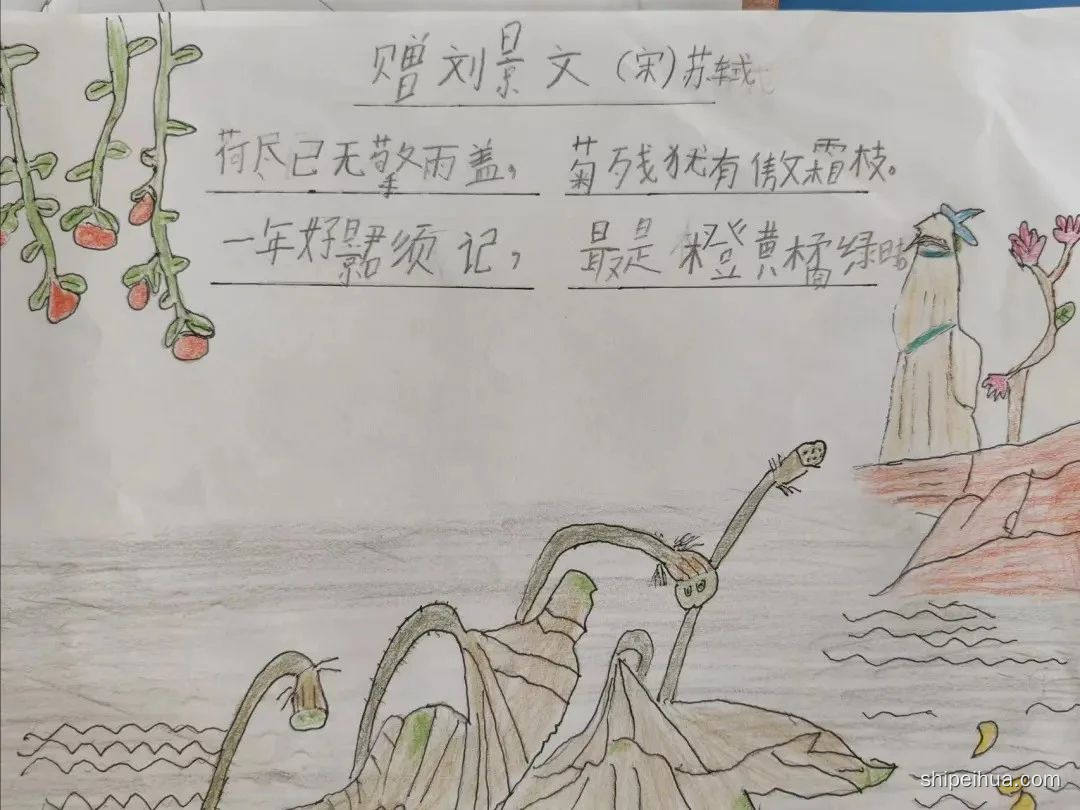 赠刘景文（宋）苏轼
荷尽已无擎雨盖，菊残犹有傲霜枝。
一年好景君须记，最是橙黄橘绿时
shipeihua.com